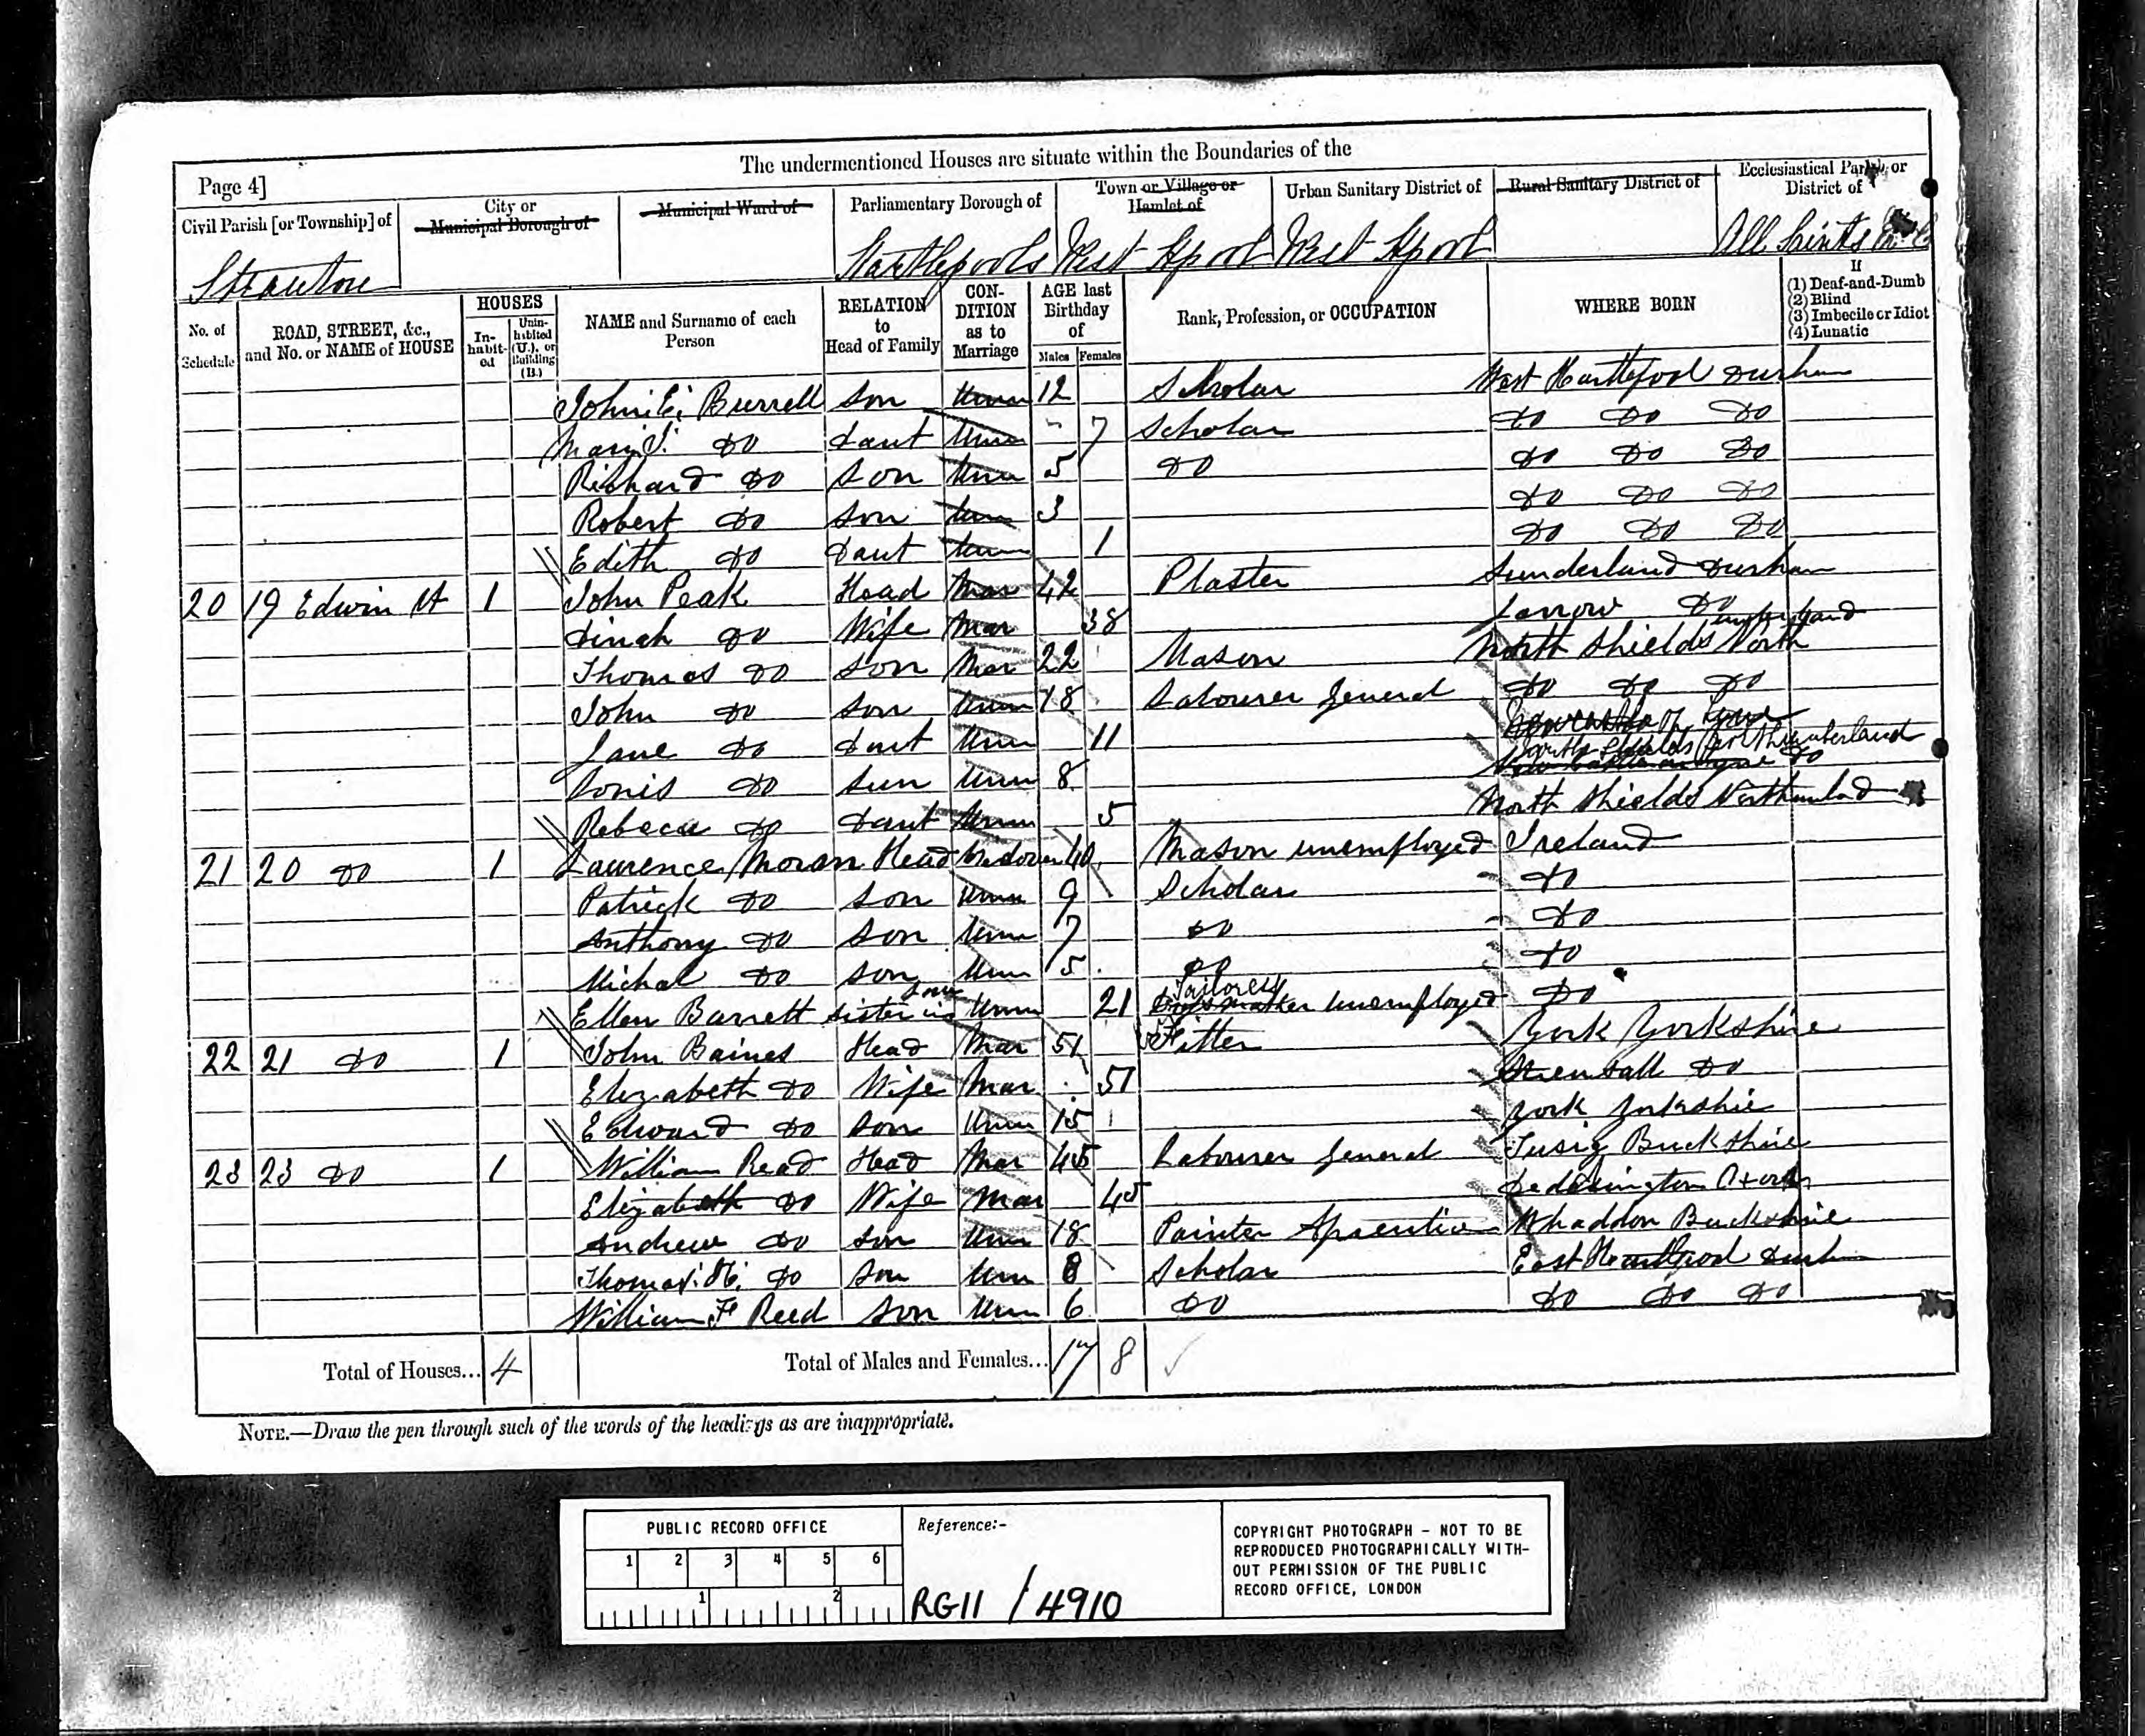 The undermentioned Houses are situate within the Boundaries of the
Page 4]
Civil Parish [or Township] of
City or Municipal Borough of
Municipal Ward of
Parliamentary Borough of
Town or Village or Hamlet of
Urban Sanitary District of
Rural Sanitary District of
Ecclesiastical Parish or District of
Stranton
Hartlepools
West Hpool
West Hpool
All Saints
No. of Schedule
ROAD, STREET, &c., and No. or NAME of HOUSE
HOUSES
In-habit-ed
Unin-habited (U.), or Building (B.)
NAME and Surname of each Person
RELATION to Head of Family
CON-DITION as to Marriage
AGE last Birthday of
Males
Females
Rank, Profession, or OCCUPATION
WHERE BORN
If
(1) Deaf-and-Dumb
(2) Blind
(3) Imbecile or Idiot
(4) Lunatic
John E. Burrell son Unm 12 Scholar West Hartlepool Durham
Mary J. Do Daut Unm 7 Scholar Do Do Do
Richard Do Son Unm 5 Do Do Do Do
Robert Do Son Unm 3 Do Do Do
Edith Do Daut Unm 1 Do Do Do
20 19 Edwin St 1 John Peak Head Mar 42 Plaster Sunderland Durham
Dinah Do Wife Mar 38 Jarrow Do
Thomas Do Son Mar 22 Mason North Shields Northumberland
John Do Son Unm 18 Labourer General Do Do Do
Jane Do Daut Unm 11 South Shields Northumberland
Do Sun Unm 8 Newcastle on Tyne Do
Rebeca Do Daut Unm 5 North Shields Northumlad
21 20 Do 1 Laurence Moran Head Widower 40 Mason unemployed Ireland
Patrick Do Son Unm 9 Scholar Do
Anthony Do Son Unm 7 Do Do
Michal Do Son Unm 5 Do Do
Ellen Barrett Sister in Law Unm 21 Tailoress unemployed Do
22 21 Do 1 John Baines Head Mar 51 Fitter York Yorkshire
Elizabeth Do Wife Mar 51 Strensall Do
Edward Do Son Unm 15 York Yorkshie
23 23 Do 1 William Read Head Mar 45 Labourer General Buckshire
Elizabeth Do Wife Mar 45
Andrew Do Son Unm 18 Painter Aprentice Whaddon Buckshire
Thomas H. Do Son Unm 8 Scholar East Hartlepool Durham
William F Reed Son Unm 6 Do Do Do Do
Total of Houses... 4
Total of Males and Females... 17 8
NOTE.—Draw the pen through such of the words of the headings as are inappropriate.
PUBLIC RECORD OFFICE
1 2 3 4 5 6
1 2
Reference:-
RG11 / 4910
COPYRIGHT PHOTOGRAPH - NOT TO BE
REPRODUCED PHOTOGRAPHICALLY WITH-
OUT PERMISSION OF THE PUBLIC
RECORD OFFICE, LONDON